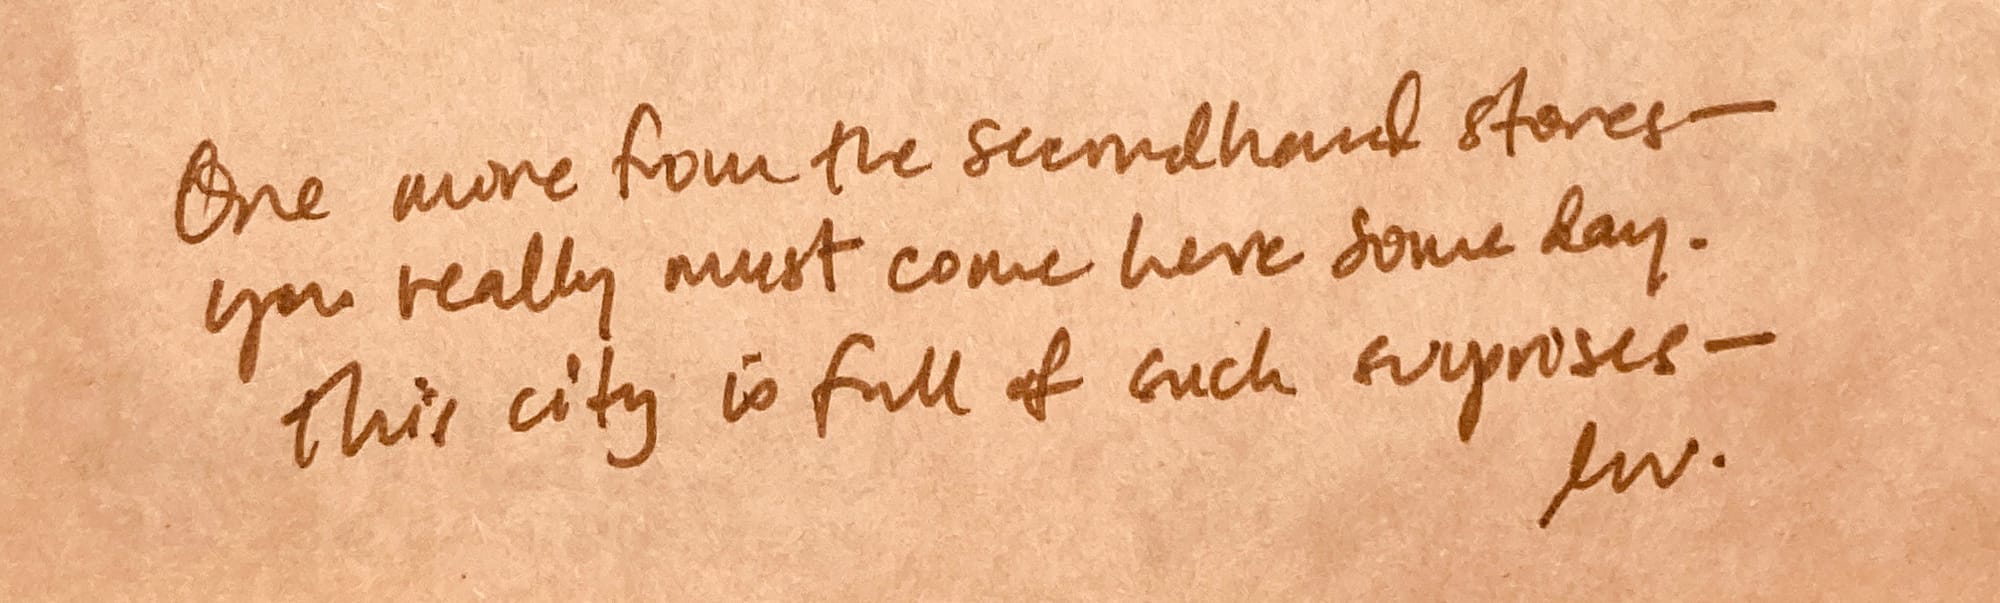 One more from the secondhand stores—
you really must come here some day.
This city is full of such surprises—